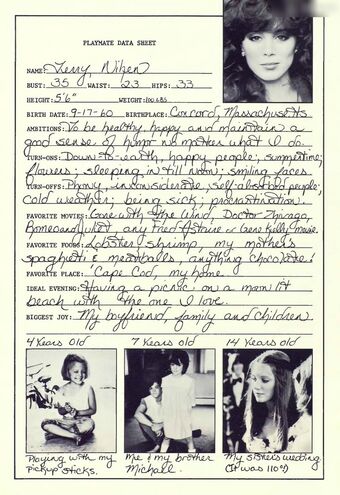 PLAYMATE DATA SHEET
NAME: Terry Nihen
BUST: 35 WAIST: 23 HIPS: 33
HEIGHT: 5'6" WEIGHT:
BIRTH DATE: 9-17-60 BIRTHPLACE: Concord, Massachusetts
AMBITIONS: To be healthy, happy and maintain a
good sense of humor no matter what I do.
TURN-ONS: Down-to-earth, happy people; summertime;
flowers; sleeping in till noon; smiling faces.
TURN-OFFS: Phony, inconsiderate, self-absorbed people;
cold weather; being sick; procrastination.
FAVORITE MOVIES: Gone with the Wind, Doctor Zhivago,
Romeo and Juliet, any Fred Astaire or Gene Kelly movie.
FAVORITE FOODS: Lobster, shrimp, my mother's
spaghetti & meatballs, anything chocolate!
FAVORITE PLACE: Cape Cod, my home.
IDEAL EVENING: Having a picnic on a moon lit
beach with the one I love.
BIGGEST JOY: My boyfriend, family and children.
4 Years Old 7 Years Old 14 Years Old
Playing with my
pickup sticks.
Me & my brother
Michael.
My sister's wedding
(It was 110°)